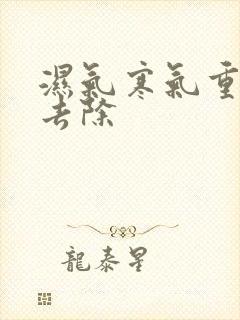 濕氣寒氣重
去除
龍泰星